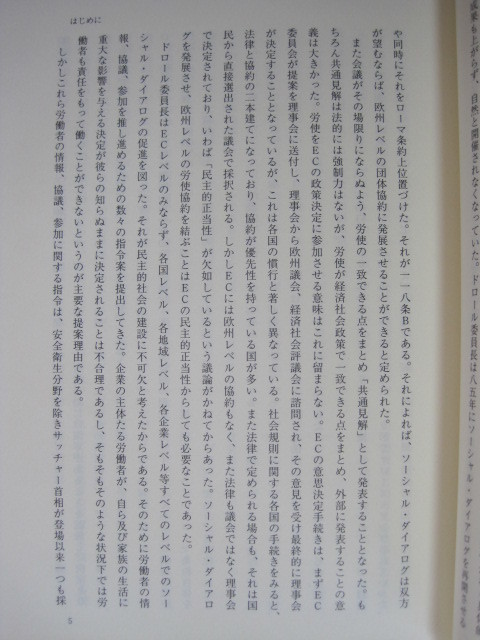 成果も上がらず、自然と開催されなくなっていた。ドロール委員長は八五年にソーシャル・ダイアログを再開させる
はじめに
や同時にそれをローマ条約上位置づけた。それが一一八条Bである。それによれば、ソーシャル・ダイアログは双方
が望むならば、欧州レベルの団体協約に発展させることができると定められた。
また会議がその場限りにならぬよう、労使の一致できる点をまとめ「共通見解」として発表することとなった。も
ちろん共通見解は法的には強制力はないが、労使が経済社会政策で一致できる点をまとめ、外部に発表することの意
義は大きかった。労使をECの政策決定に参加させる意味はこれに留まらない。ECの意思決定手続きは、まずEC
委員会が提案を理事会に送付し、理事会から欧州議会、経済社会評議会に諮問され、その意見を受け最終的に理事会
が決定することとなっているが、これは各国の慣行と著しく異なっている。社会規則に関する各国の手続きをみると、
法律と協約の二本建てになっており、協約が優先性を持っている国が多い。また法律で定められる場合も、それは国
民から直接選出された議会で採択される。しかしECには欧州レベルの協約もなく、また法律も議会ではなく理事会
で決定されており、いわば「民主的正当性」が欠如しているという議論がかねてからあった。ソーシャル・ダイアロ
グを発展させ、欧州レベルの労使協約を結ぶことはECの民主的正当性からしても必要なことであった。
ドロール委員長はECレベルのみならず、各国レベル、各地域レベル、各企業レベル等すべてのレベルでのソー
シャル・ダイアログの促進を図った。それが民主的社会の建設に不可欠と考えたからである。そのために労働者の情
報、協議、参加を推し進めるための数々の指令案を提出してきた。企業の主体たる労働者が、自ら及び家族の生活に
重大な影響を与える決定が彼らの知らぬままに決定されることは不合理であるし、そもそもそのような状況下では労
働者も責任をもって働くことができないというのが主要な提案理由である。
しかしこれら労働者の情報、協議、参加に関する指令は、安全衛生分野を除きサッチャー首相が登場以来一つも採
5